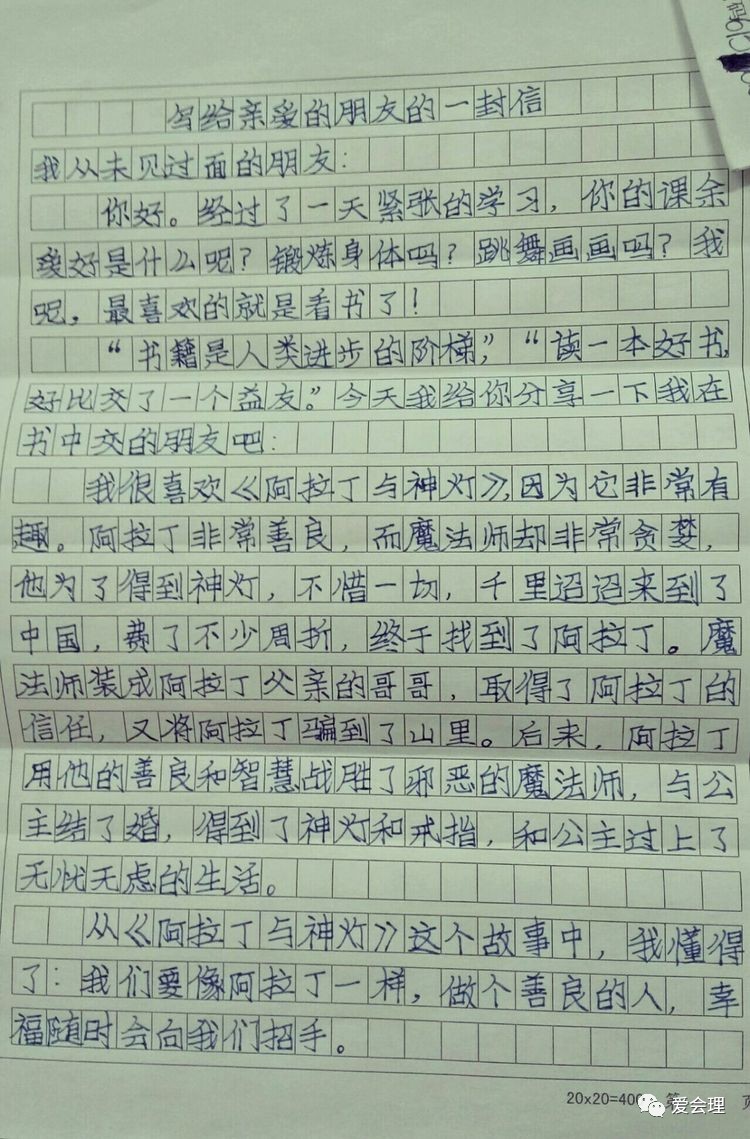 写给亲爱的朋友的一封信
我从未见过面的朋友：
你好。经过了一天紧张的学习，你的课余
爱好是什么呢？锻炼身体吗？跳舞画画吗？我
呢，最喜欢的就是看书了！
“书籍是人类进步的阶梯”，“读一本好书，
好比交了一个益友。”今天我给你分享一下我在
书中交的朋友吧：
我很喜欢《阿拉丁与神灯》，因为它非常有
趣。阿拉丁非常善良，而魔法师却非常贪婪，
他为了得到神灯，不惜一切，千里迢迢来到了
中国，费了不少周折，终于找到了阿拉丁。魔
法师装成阿拉丁父亲的哥哥，取得了阿拉丁的
信任，又将阿拉丁骗到了山里。后来，阿拉丁
用他的善良和智慧战胜了邪恶的魔法师，与公
主结了婚，得到了神灯和戒指，和公主过上了
无忧无虑的生活。
从《阿拉丁与神灯》这个故事中，我懂得
了：我们要像阿拉丁一样，做个善良的人，幸
福随时会向我们招手。
20x20=400 第 页
爱会理